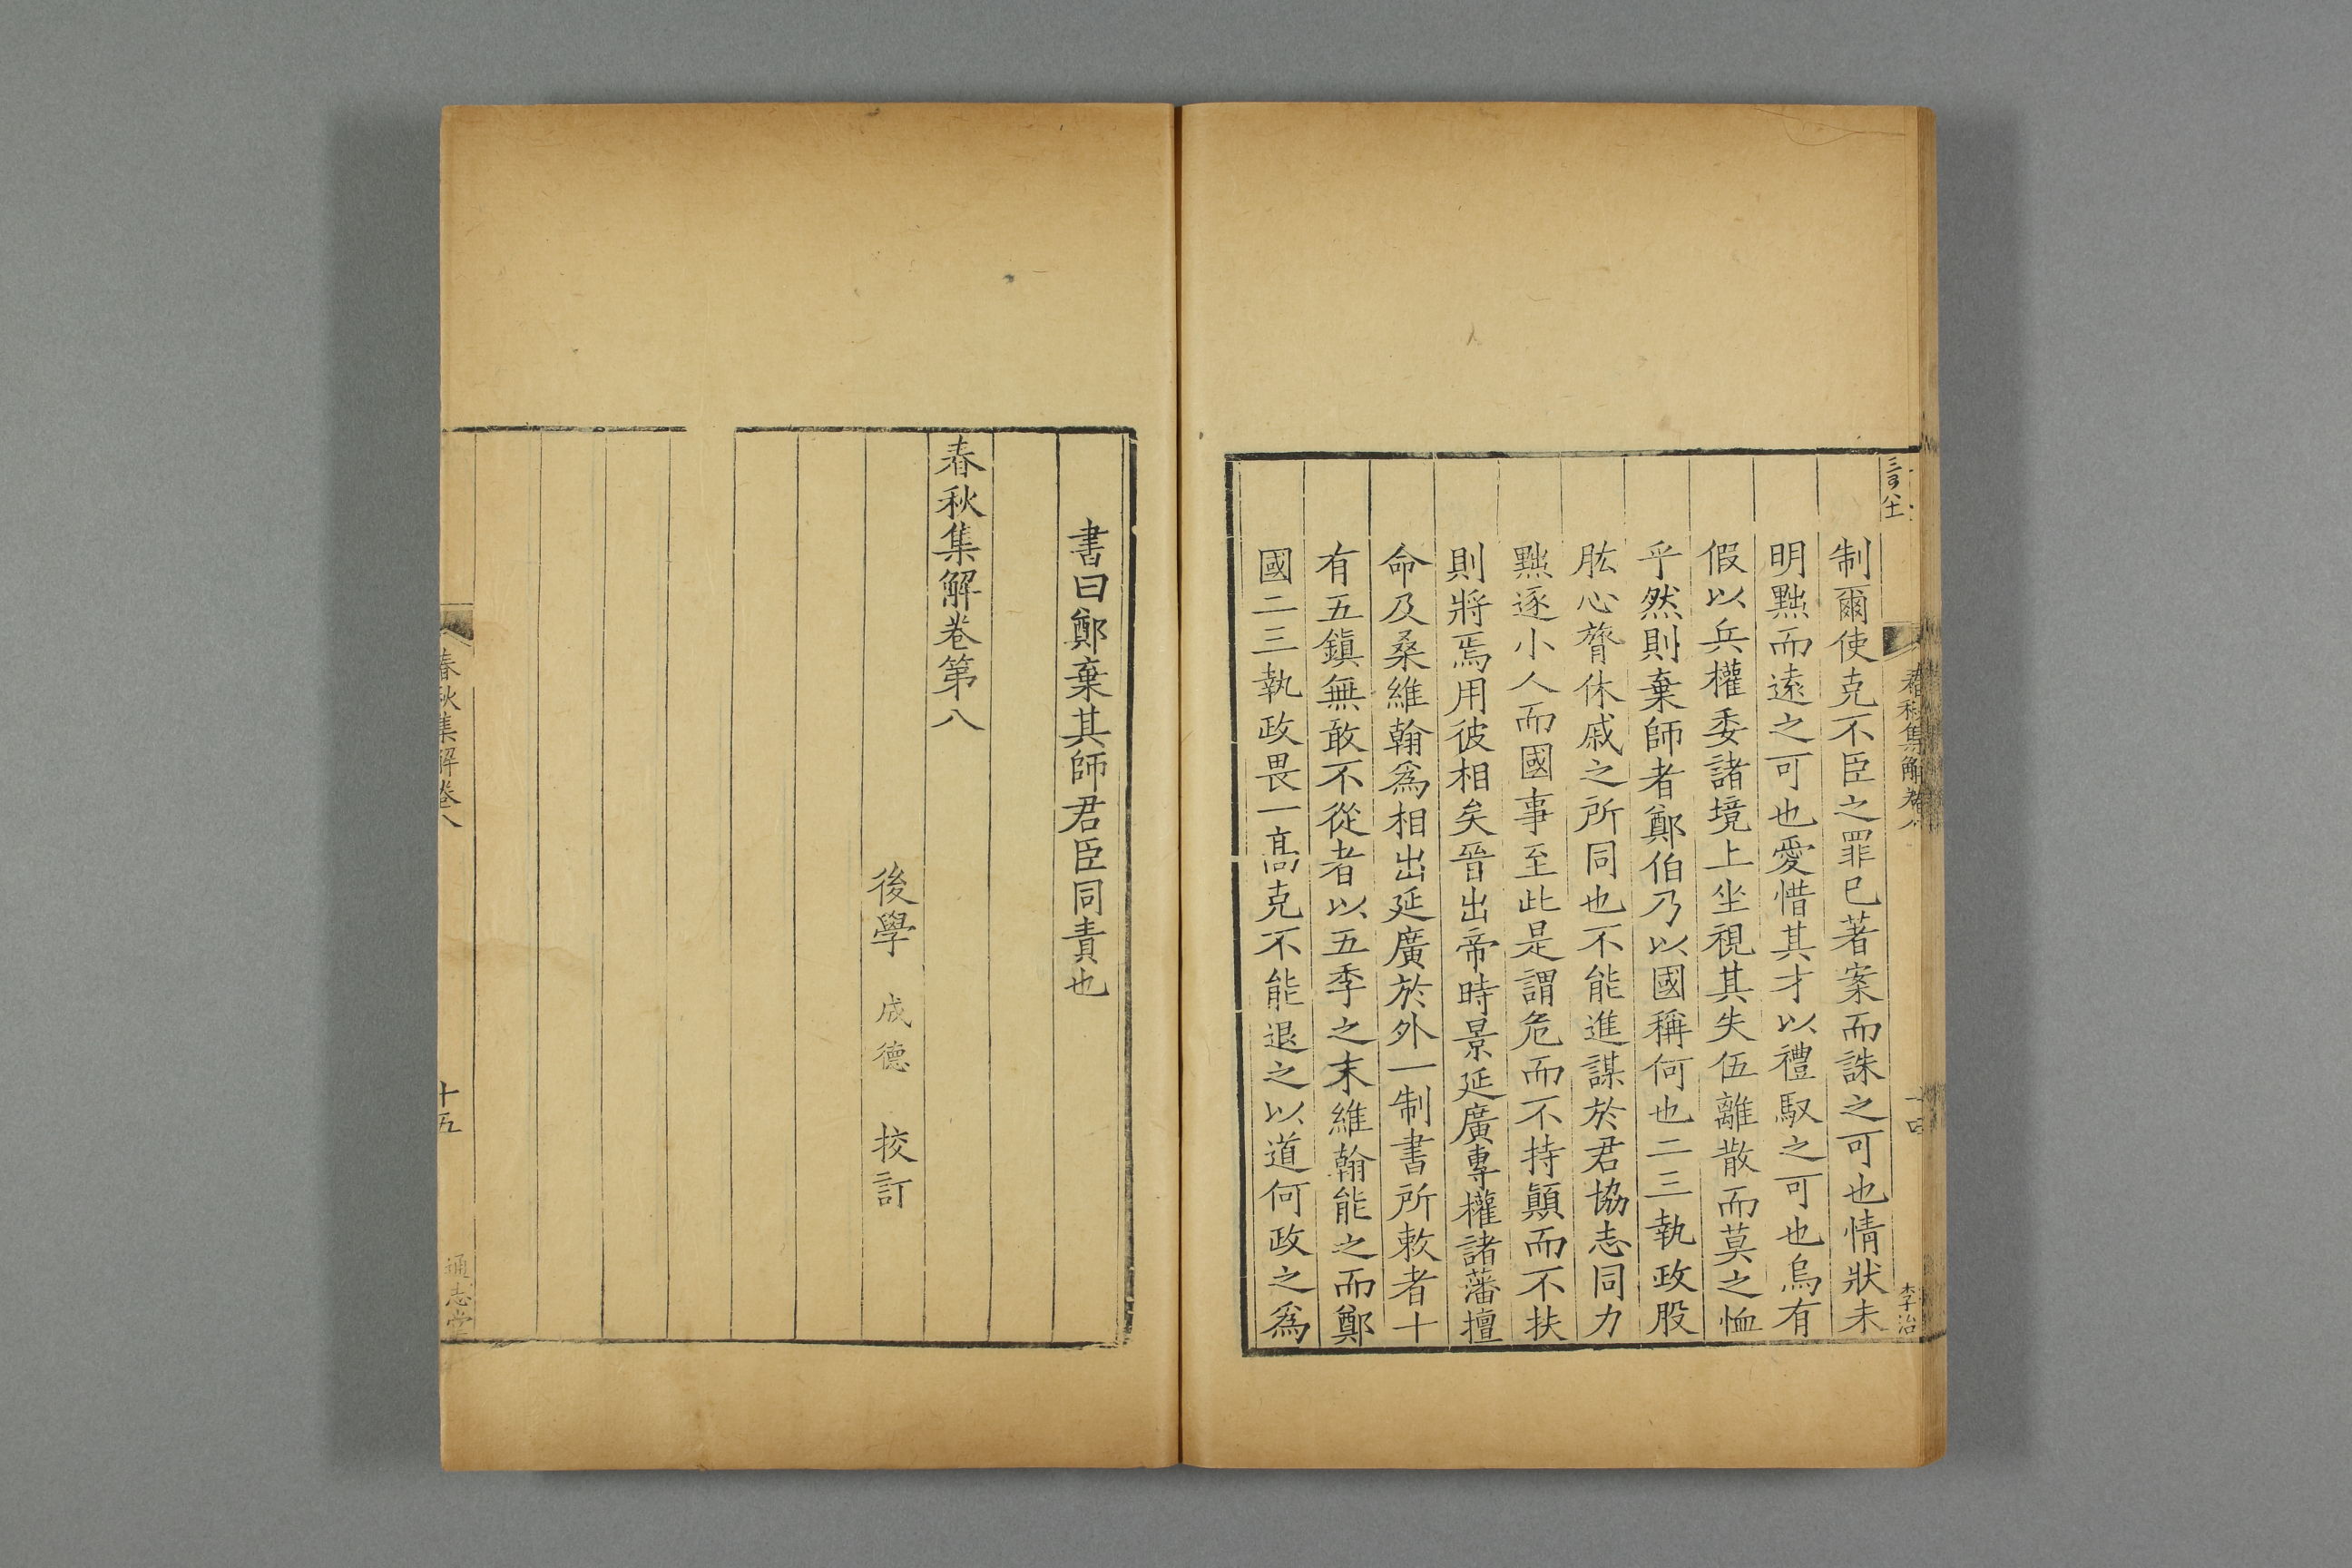 制爾使克不臣之罪已著案而誅之可也情狀未
明黜而遠之可也愛惜其才以禮馭之可也烏有
假以兵權委諸境上坐視其失伍離散而莫之恤
乎然則棄師者鄭伯乃以國稱何也二三執政股
肱心膂休戚之所同也不能進謀於君協志同力
黜逐小人而國事至此是謂危而不持顛而不扶
則將焉用彼相矣晉出帝時景延廣專權諸藩擅
命及桑維翰爲相出延廣於外一制書所敕者十
有五鎮無敢不從者以五季之末維翰能之而鄭
國二三執政畏一高克不能退之以道何政之爲
春秋集解卷八
十四
李治
書曰鄭棄其師君臣同責也
春秋集解卷第八
後學 成德 校訂
春秋集解卷八
十五
通志堂